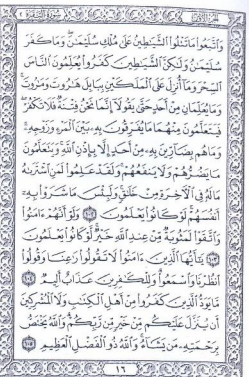 سورة البقرة ٢
الجزء الأول
وَٱتَّبَعُوا۟ مَا تَتْلُوا۟ ٱلشَّيَٰطِينُ عَلَىٰ مُلْكِ سُلَيْمَٰنَ وَمَا كَفَرَ
سُلَيْمَٰنُ وَلَٰكِنَّ ٱلشَّيَٰطِينَ كَفَرُوا۟ يُعَلِّمُونَ ٱلنَّاسَ
ٱلسِّحْرَ وَمَآ أُنزِلَ عَلَى ٱلْمَلَكَيْنِ بِبَابِلَ هَٰرُوتَ وَمَٰرُوتَ
وَمَا يُعَلِّمَانِ مِنْ أَحَدٍ حَتَّىٰ يَقُولَآ إِنَّمَا نَحْنُ فِتْنَةٌ فَلَا تَكْفُرْ
فَيَتَعَلَّمُونَ مِنْهُمَا مَا يُفَرِّقُونَ بِهِۦ بَيْنَ ٱلْمَرْءِ وَزَوْجِهِۦ
وَمَا هُم بِضَآرِّينَ بِهِۦ مِنْ أَحَدٍ إِلَّا بِإِذْنِ ٱللَّهِ وَيَتَعَلَّمُونَ
مَا يَضُرُّهُمْ وَلَا يَنفَعُهُمْ وَلَقَدْ عَلِمُوا۟ لَمَنِ ٱشْتَرَىٰهُ
مَا لَهُۥ فِى ٱلْءَاخِرَةِ مِنْ خَلَٰقٍ وَلَبِئْسَ مَا شَرَوْا۟ بِهِۦٓ
أَنفُسَهُمْ لَوْ كَانُوا۟ يَعْلَمُونَ ١٠٢ وَلَوْ أَنَّهُمْ ءَامَنُوا۟
وَٱتَّقَوْا۟ لَمَثُوبَةٌ مِّنْ عِندِ ٱللَّهِ خَيْرٌ لَّوْ كَانُوا۟ يَعْلَمُونَ
١٠٣ يَٰٓأَيُّهَا ٱلَّذِينَ ءَامَنُوا۟ لَا تَقُولُوا۟ رَٰعِنَا وَقُولُوا۟
ٱنظُرْنَا وَٱسْمَعُوا۟ وَلِلْكَٰفِرِينَ عَذَابٌ أَلِيمٌ ١٠٤
مَّا يَوَدُّ ٱلَّذِينَ كَفَرُوا۟ مِنْ أَهْلِ ٱلْكِتَٰبِ وَلَا ٱلْمُشْرِكِينَ
أَن يُنَزَّلَ عَلَيْكُم مِّنْ خَيْرٍ مِّن رَّبِّكُمْ وَٱللَّهُ يَخْتَصُّ
بِرَحْمَتِهِۦ مَن يَشَآءُ وَٱللَّهُ ذُو ٱلْفَضْلِ ٱلْعَظِيمِ ١٠٥
١٦